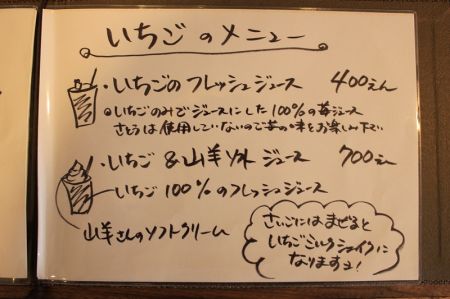 いちごのメニュー
・いちごのフレッシュジュース 400えん
◎いちごのみでジュースにした100%の苺ジュース
さとうは使用していないので苺の味をお楽しみ下さい
・いちご&山羊ソフト ジュース 700えん
いちご100%のフレッシュジュース
山羊さんのソフトクリーム
さいごにはまぜると
いちごミルクシェイクに
なりますよ!